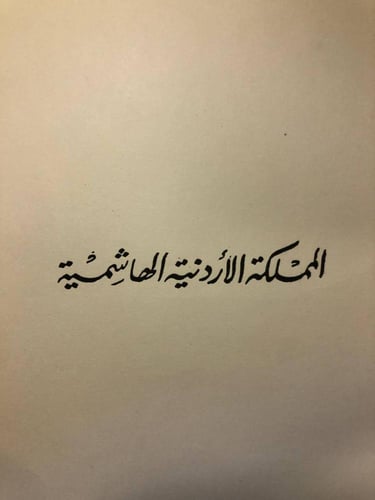 الممْلكة الأردنيّة الهاشِمْية